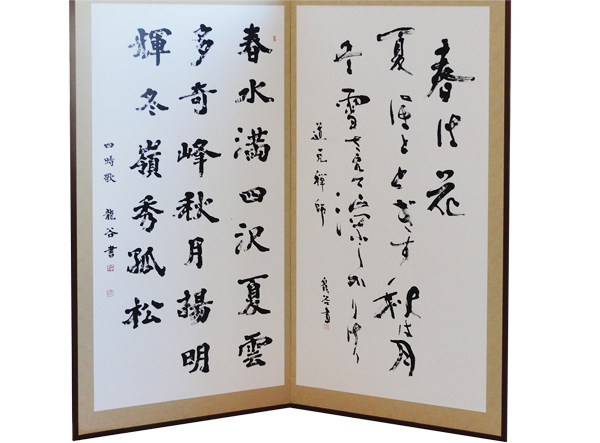 春は花
夏ほととぎす秋は月
冬雪さえて涼しかりけり
道元禅師
龍谷書
春水満四沢夏雲
多奇峰秋月揚明
輝冬嶺秀孤松
四時歌 龍谷書